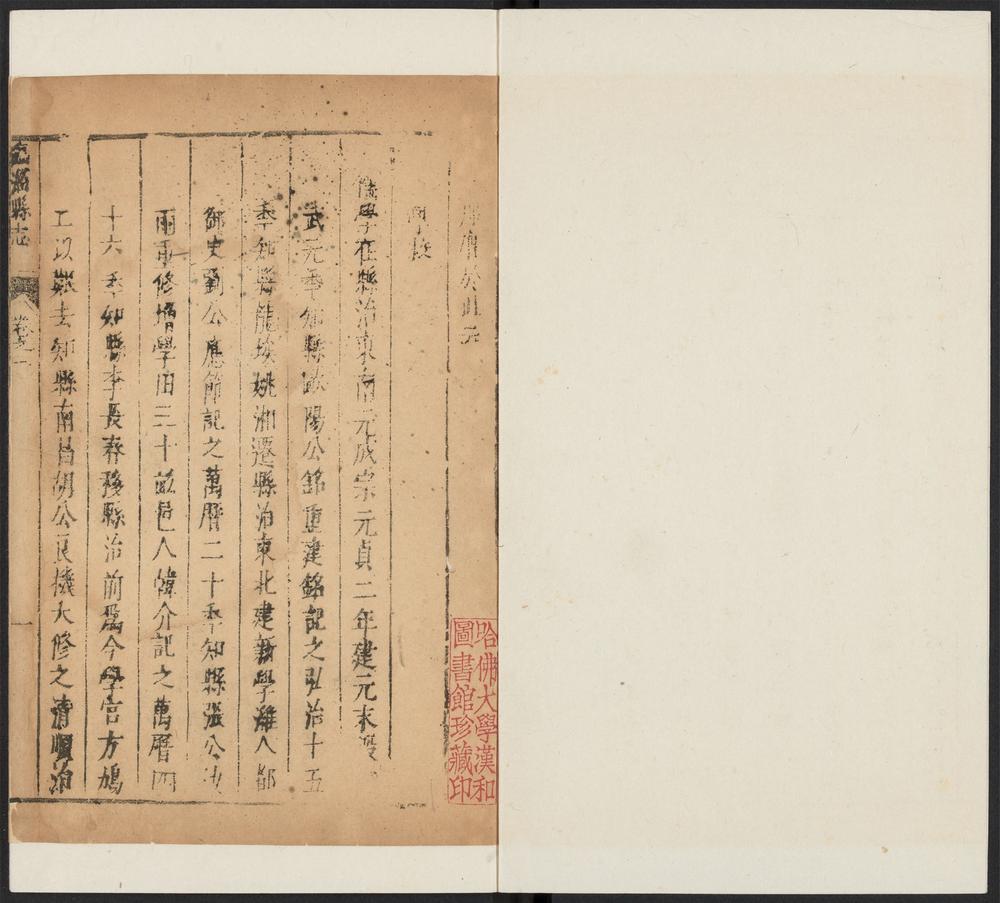 於此元
學校
儒學在縣治東南元成宗元貞二年建元末燬
武元年知縣歐陽公銘重建銘記之弘治十五
季知縣龍埃姚湘遷縣治東北建新學濰人都
御史劉公應節記之萬曆二十季知縣張公
雨重修增學田三十畝邑人韓介記之萬曆四
十六季知縣李長春移縣治前爲今學宮方鳩
工以艱去知縣南昌胡公良機大修之清順治
縣志 卷之 一
哈佛大學漢和
圖書館珍藏印